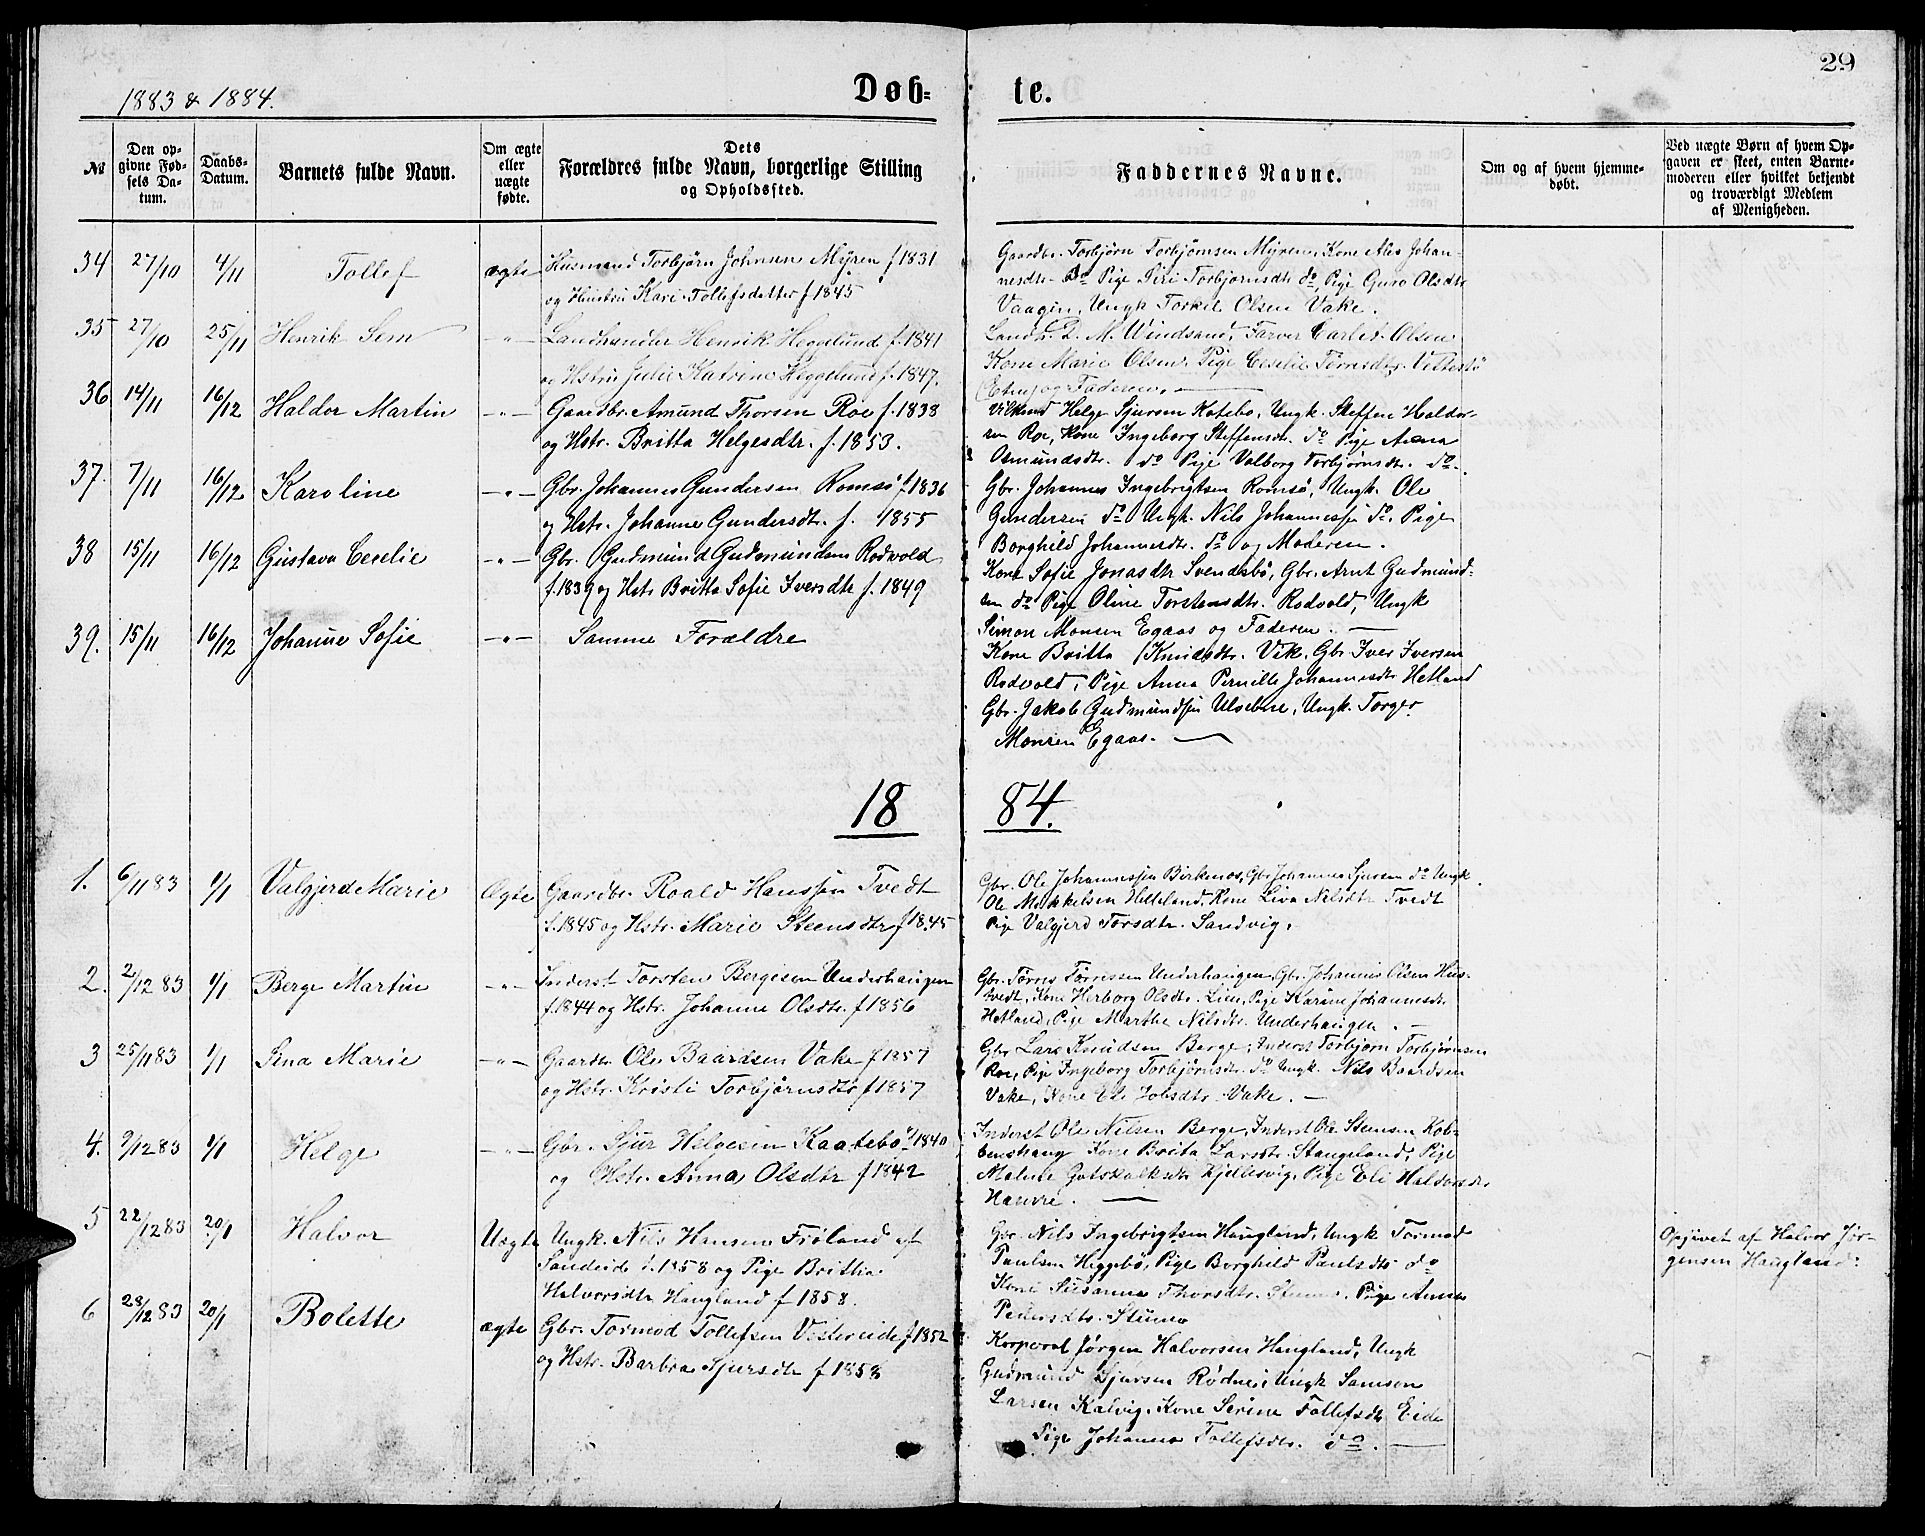 29
1883 & 1884.
Døb= te.
№
Den op-
givne Fød-
sels Da-
tum.
Daabs-
Datum.
Barnets fulde Navn.
Om ægte
eller
uægte
fødte.
Dets
Forældres fulde Navn, borgerlige Stilling
og Opholdssted.
Faddernes Navne.
Om og af hvem hjemme-
døbt.
Ved uægte Børn af hvem Op-
gaven er skeet, enten Barne-
moderen eller hvilket bekjendt
og troværdigt Medlem
af Menigheden.
34 27/10 4/11 Tollef ægte Husmand Torbjørn Johnsen Myren f 1831
og Hustru Kari Tollefsdatter f 1845
Gaardbr. Torbjørn Torbjørnsen Myren, Kone Ales Johan-
nesdtr. do Pige Siri Torbjørnsdtr do, Pige Guro Olsdtr
Vaagen, Ungk Torkel Olsen Vake.
35 27/10 25/11 Henrik Sem -"- Landhandler Henrik Heggelund f. 1841
og Hstru Julie Katrine Heggelund f. 1847.
Landh. L. M. Windsand, Farver Carl Olsen
Kone Marie Olsen, Pige Ceselie Tørresdtr. Vettestø
(Etne) og Faderen.
36 14/11 16/12 Haldor Martin -"- Gaardbr. Amund Thorsen Roe f. 1838
og Hstr. Britta Helgesdtr. f. 1853.
Helge Sjursen Katebo, Ungk. Steffen Haldor-
sen Roe, Kone Ingeborg Steffensdtr. do Pige Anna
Osmundsdtr. do Pige Valborg Torbjørnsdtr. do.
37. 7/11 16/12 Karoline -"- Gbr. Johannes Gundersen Romsø f. 1836
og Hstr. Johanne Gundersdtr. f. 1855
Gbr. Johannes Ingebrigtsen Romsø, Ungk. Ole
Gundersen do Ungk. Nils Johannessen do. Pige
Borghild Johannesdtr. do og Moderen.
38 15/11 16/12 Gustava Ceselie -"- Gbr. Gudmund Gudmundsen Rodvold
f. 1839 og Hstr Britta Sofie Iversdtr f. 1849
Kone Sofie Jonasdtr Svendsbø, Gbr. Arnt Gudmund-
sen do Pige Oline Torstensdtr. Rodvold, Ungk
Simon Monsen Egaas og Faderen.
39. 15/11 16/12 Johanne Sofie -"- Samme Forældre
Kone Britta Knudsdtr. Vik, Gbr Iver Iversen
Rodvold, Pige Anna Pernille Johannesdtr Hetland
Gbr. Jakob Gudmundsen Ulvebne, Ungk. Torger
Monsen Egaas.
18 84.
1. 6/11 83 1/1 Valgjerd Marie Ægte Gaardbr. Roald Hanssen Tvedt
f. 1845 og Hstr. Marie Steensdtr f 1845
Gbr. Ole Johannessen Birkenes, Gbr Johannes Sjursen do Ungk.
Ole Mikkelsen Helleland, Kone Liva Nilsdtr Tvedt
Pige Valgjerd Torsdtr. Sandvig.
2. 2/12 83 1/1 Berge Martin -"- Inderst Torsten Bergesen Underhaugen
f. 1844 og Hstr. Johanne Olsdtr. f 1856
Gbr. Tørres Tørressen Underhaugen, Gbr. Johannes Olsen Hus-
tvedt, Kone Herborg Olsdtr. Lien, Pige Karine Johannesdtr
Hetland, Pige Marthe Nilsdtr. Underhaugen.
3 25/11 83 1/1 Sina Marie -"- Gaardbr Ole Baardsen Vake f 1857
og Hstr. Kristi Torbjørnsdtr f 1857
Gbr Lars Knudsen Berge, Inderst Torbjørn Torbjørnsen
Roe, Pige Ingeborg Torbjørnsdtr. do Ungk. Nils Baardsen
Vake, Kone Eli Jobsdtr. Vake.
4. 9/12 83 1/1 Helge -"- Gbr. Sjur Helgesen Kaatebø f 1840
og Hstr. Anna Olsdtr f 1842
Inderst Ole Nilsen Berge, Inderst Ole Steensen Kob-
benshaug Kone Brita Larsdtr. Stangeland, Pige
Malene Gotskalksdtr Kjellesvig, Pige Eli Haldorsdtr.
5 22/12 83 20/1 Halvor Uægte Ungk. Nils Hansen Frøland af
Sandeid f. 1858 og Pige Britha
Halvorsdtr Haugland f 1858.
Gbr. Nils Ingebrigtsen Haugland, Ungk Tormod
Paulsen Heggebø, Pige Borghild Paulsdtr do
Kone Susanna Thorsdtr. Stumo, Pige Anna
Pedersdtr. Stumo
Opgivet af Halvor Jør-
gensen Haugland.
6 28/12 83 20/1 Bolette ægte Gbr. Tormod Tollefsen Vistereide f 1852
og Hstr. Barbra Sjursdtr f 1858
Korporal Jørgen Halvorsen Haugland, Ungk
Gudmund Sjursen Rødne, Ungk Samson
Larsen Kalvig, Kone Serine Tollefsdtr Eide
Pige Johanna Tollefsdtr. do.